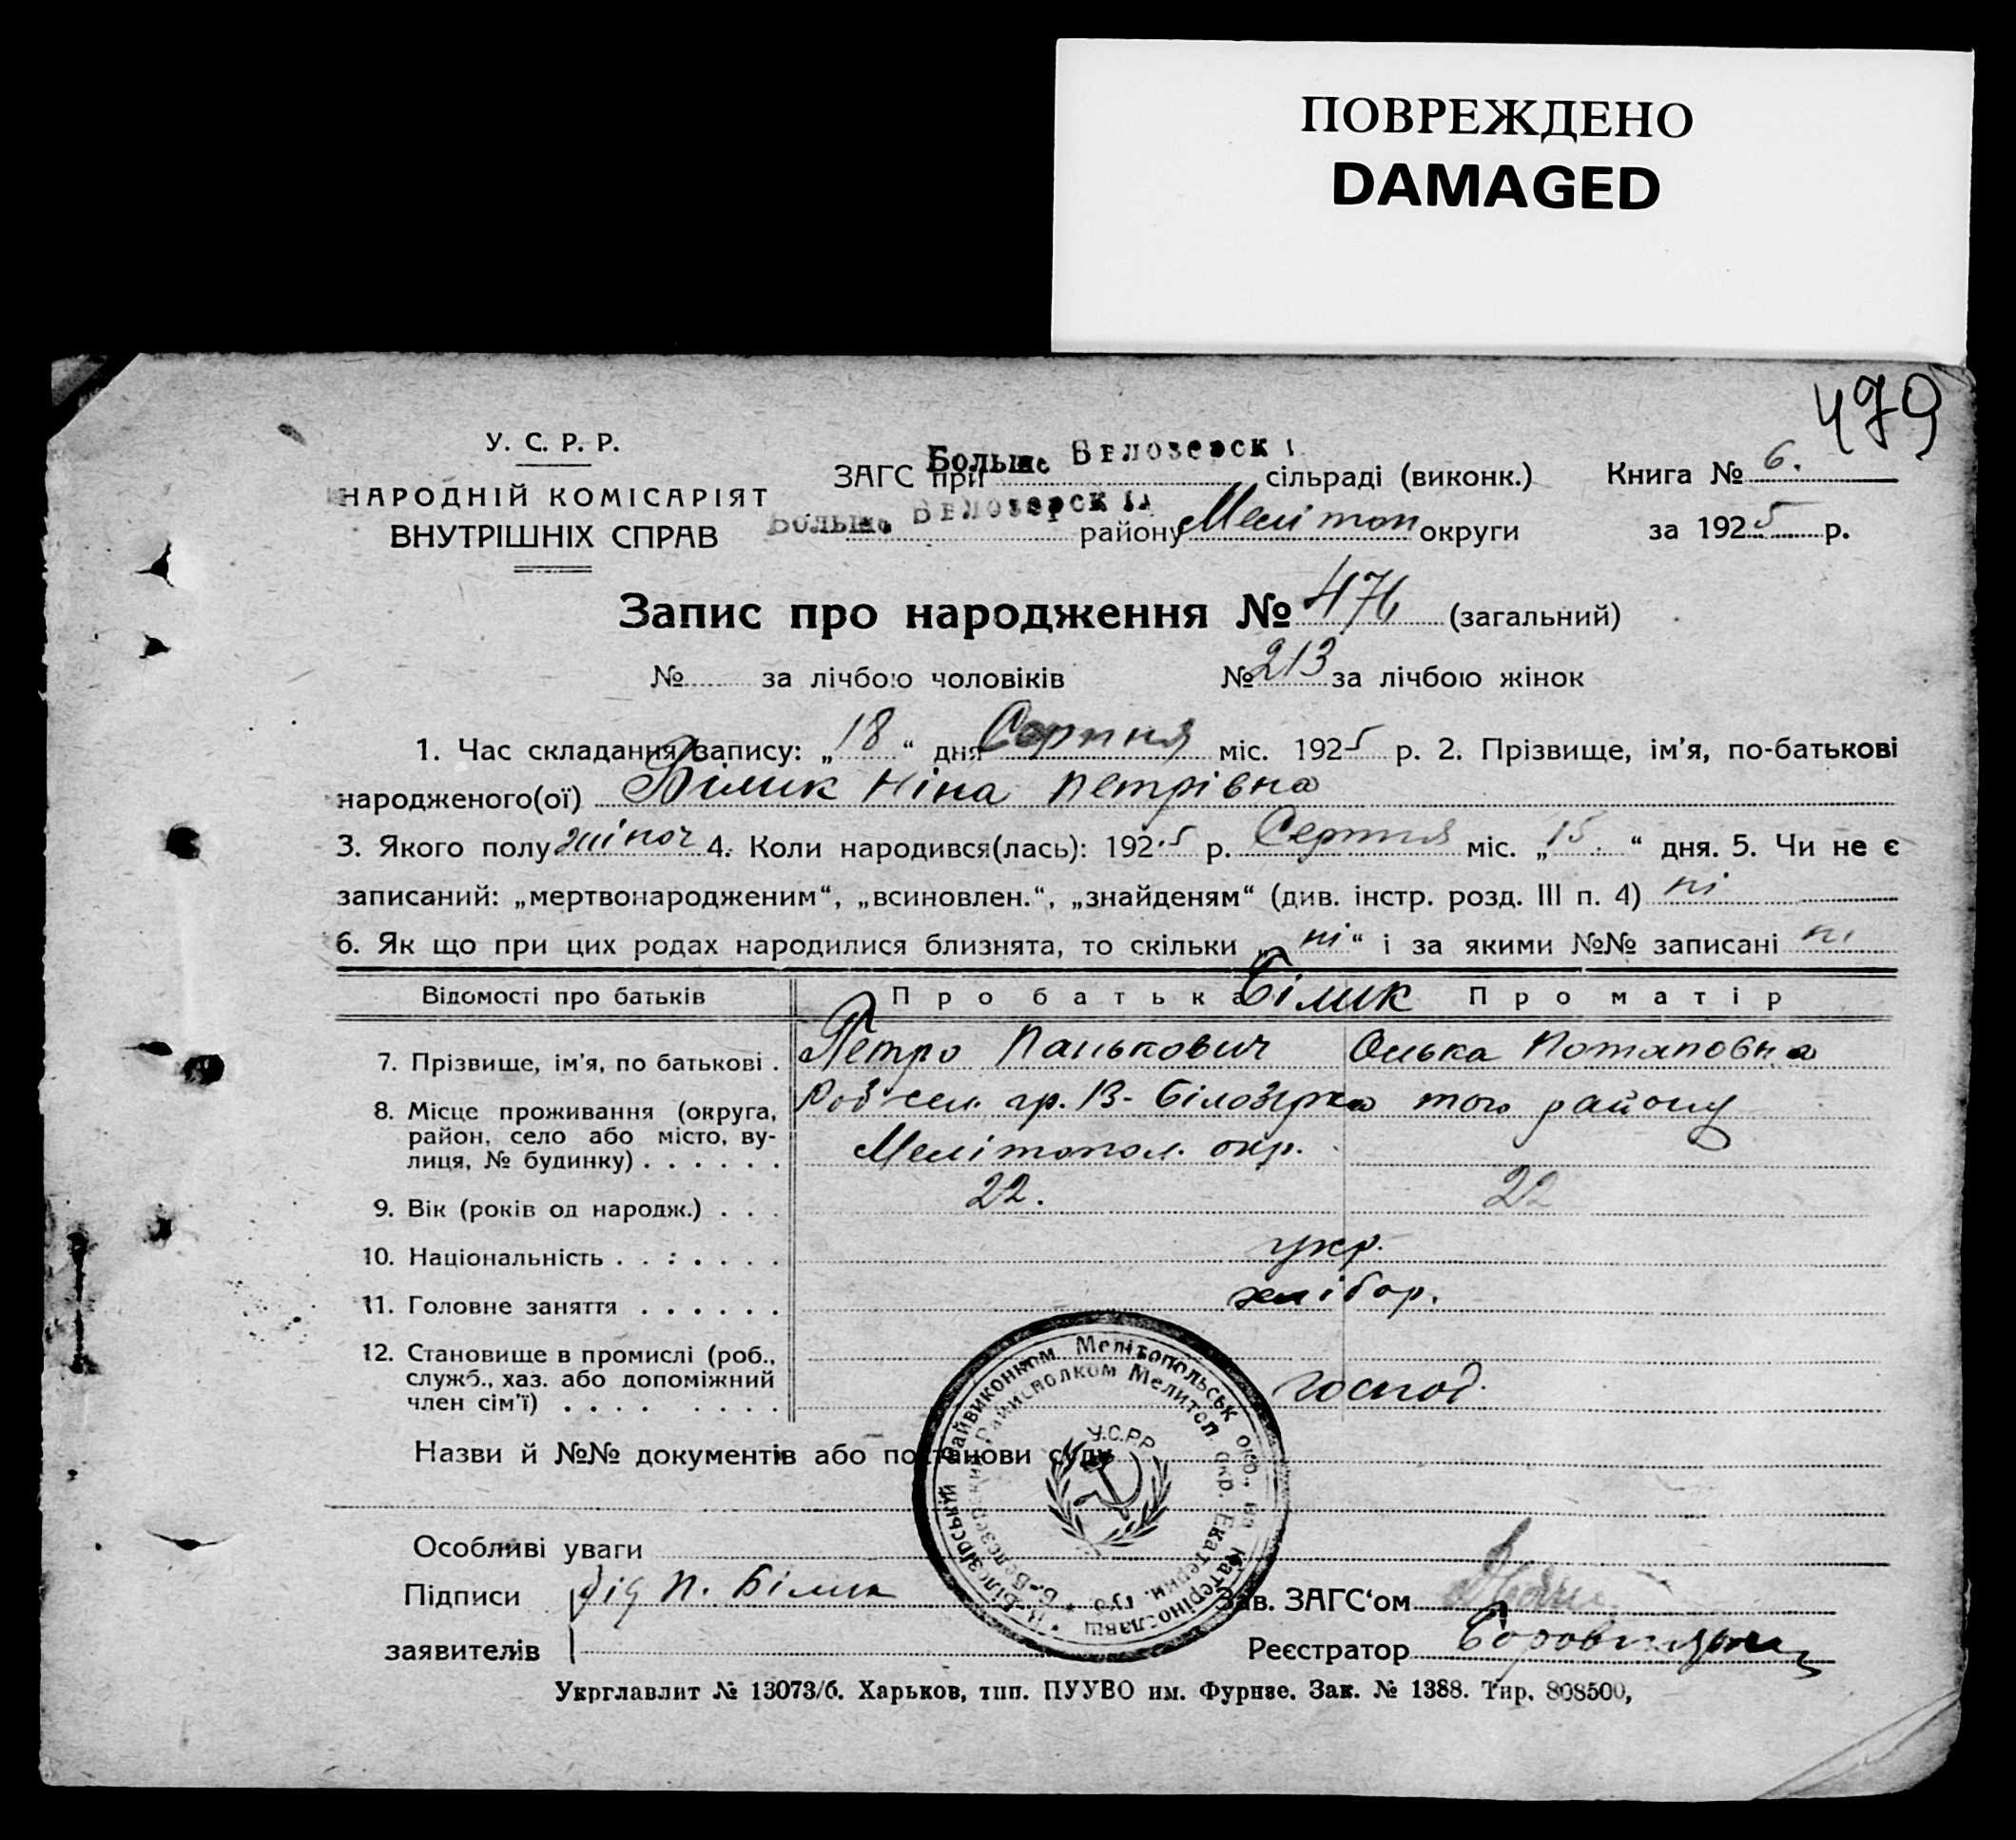 ПОВРЕЖДЕНО
DAMAGED
479
У. С. Р. Р.
НАРОДНІЙ КОМІСАРІЯТ
ВНУТРІШНІХ СПРАВ
ЗАГС при Больше Бѣлозерск сільраді (виконк.) Книга № 6.
Больше Бѣлозерск району Мелітоп округи за 1925 р.
Запис про народження № 476 (загальний)
№ за лічбою чоловіків № 213 за лічбою жінок
1. Час складання запису: „18“ дня Серпня міс. 1925 р. 2. Прізвище, ім'я, по-батькові
народженого(ої) Білик Ніна Петрівна
3. Якого полу жіноч 4. Коли народився(лась): 1925 р. Серпня міс. „15.“ дня. 5. Чи не є
записаний: „мертвонародженим“, „всиновлен.“, „знайденям“ (див. інстр. розд. III п. 4) ні
6. Як що при цих родах народилися близнята, то скільки „ні“ і за якими №№ записані ні
Відомості про батьків Про батька Білик Про матір
7. Прізвище, ім'я, по батькові . Петро Панькович Олька Потаповна
8. Місце проживання (округа, район, село або місто, вулиця, № будинку) . . . . . . сел. гр. В-Білозірка того району
Мелітопол. окр.
9. Вік (років од народж.) . . . 22. 22
10. Національність . . : . . . . укр.
11. Головне заняття . . . . . . хлібор.
12. Становище в промислі (роб., служб., хаз. або допоміжний член сім'ї) . . . . . . . . господ.
Назви й №№ документів або постанови суду
В-Білозірський Райвиконком Мелітопольськ окр., на Катеринославщ
Б-Белозерский Райисполком Мелитоп окр. Екатерин. губ
У.С.Р.Р
Особливі уваги
Підписи П. Білик Зав. ЗАГС'ом
заявителів Реєстратор
Укрглавлит № 13073/б. Харьков, тип. ПУУВО им. Фрунзе. Зак. № 1388. Тир. 808500,